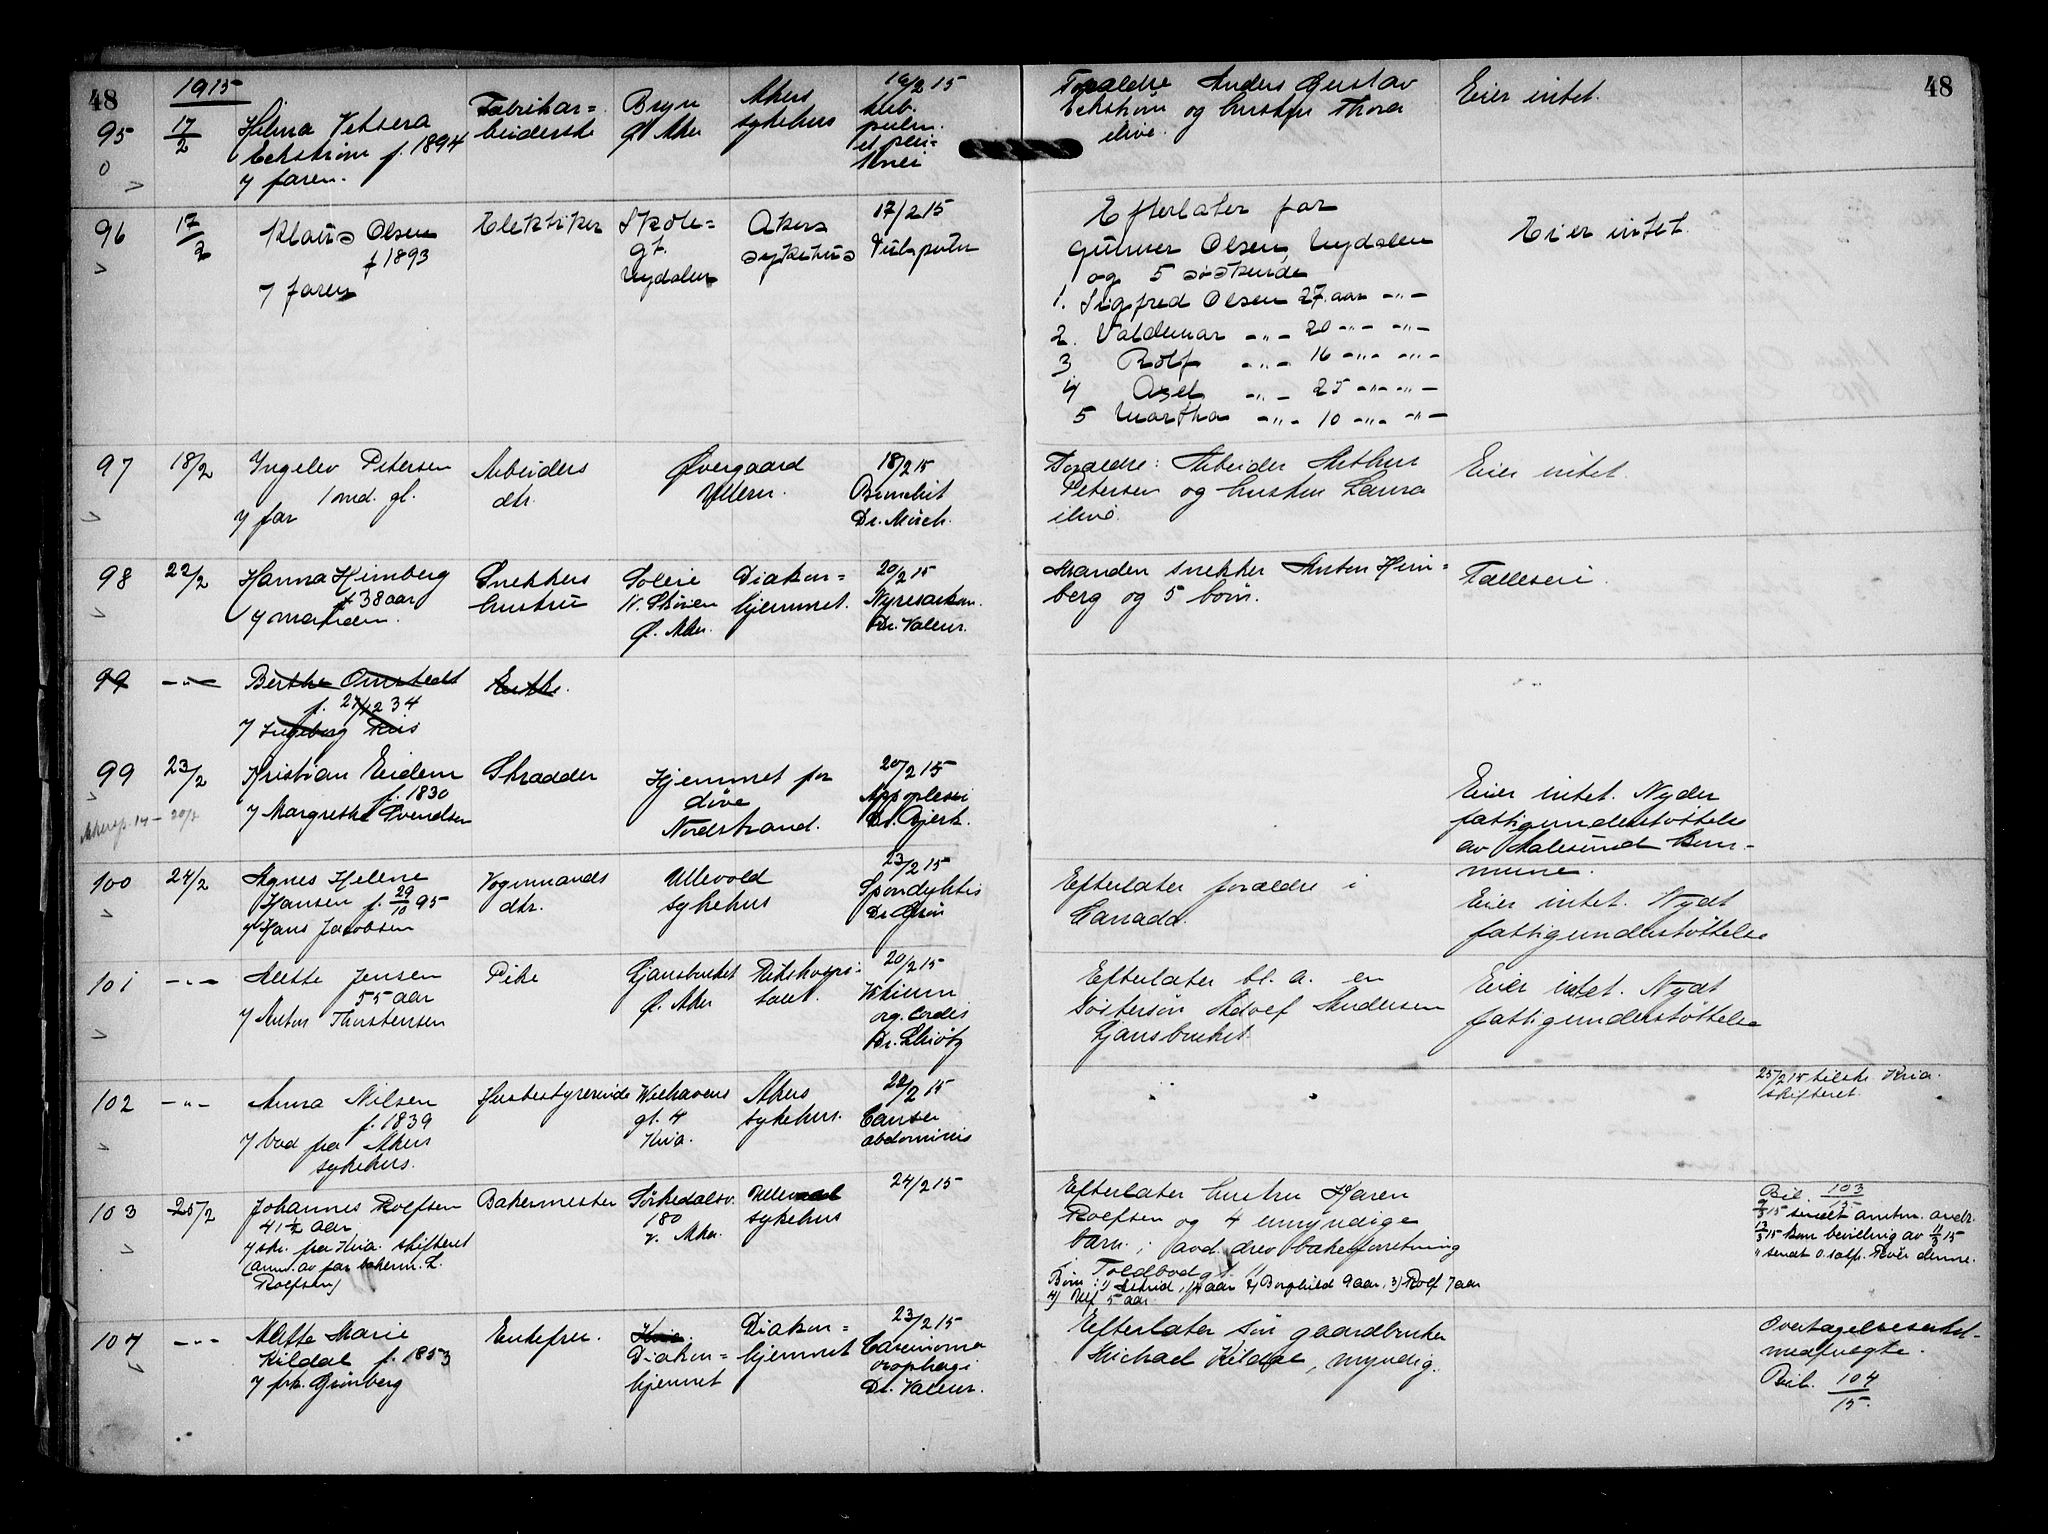 48
1915
95
17/2
Hilma Vetsera
Eckstrøm f. 1894
v/ faren.
Fabrikar=
beiderske
Bryn
Ø. Aker
Akers
sykehus
16/2 15
tub.
pulm.
et peri=
tonei
Forældre Anders Gustav
Eckstrøm og hustru Thora
ilive.
Eier intet.
48
96
17/2
Klaus Olsen
f 1893
v/ faren
Elektriker
Skole=
gt.
Nydalen
Akers
sykehus
17/2 15
Tub. pulm
Efterlater far
Gunner Olsen, Nydalen
og 5 søskende
1. Sigfred Olsen 27 aar -"-
2. Valdemar -"- 20 -"- -"-
3 Rolf -"- 16 -"- -"-
4 Axel -"- 25 -"- -"-
5 Martha -"- 10 -"- -"-
Eier intet.
97
18/2
Ingelev Petersen
1 md. gl.
v/ far
Arbeiders
dtr.
Øvergaard
Ullern.
18/2 15
Bronchit
Dr. Münch.
Forældre: Arbeider Arthur
Petersen og hustru Laura
ilive.
Eier intet.
98
22/2
Hanna Heimberg
38 aar
v/ manden.
Snekkers
hustru
Soleie
N. Skøien
Ø. Aker.
Diakon=
hjemmet.
20/2 15
Nyresarkom.
Dr. Valeur.
Manden snekker Anton Heim=
berg og 5 børn.
Fælleseie.
99
-"-
Berthe Omstedt
f. 27/12 34
v/ Ingeborg Riis
Enke.
99
23/2
Kristian Eidem
f. 1830
v/ Margrethe Svendsen
Skrædder
Hjemmet for
døve
Nordstrand.
20/2 15
Appoplexi
Dr. Bjerk.
Eier intet. Nyder
fattigunderstøttelse
av Aalesund kom-
mune.
100
24/2
Agnes Helene
Hansen f. 29/10 95
v/ Hans Jacobsen
Vognmands
dtr.
Ullevold
sykehus
23/2 15
Spondylitis
Dr. Grøn
Efterlater forældre i
Canada.
Eier intet. Nydt
fattigunderstøttelse
101
-"-
Mette Jensen
55 aar
v/ Anton Thorstensen
Pike
Ljansbruket
Ø. Aker
Rikshospi-
talet.
20/2 15
Vitium
org. cordis
Dr. Schiøtz
Efterlater bl. a. en
søstersøn Adolf Andersen
Ljansbruket.
Eier intet. Nydt
fattigunderstøttelse
102
-"-
Anna Nilsen
f. 1839
v/ bud fra Akers
sykehus.
Husbestyrerinde
Welhavens
gt. 4
Kria.
Akers
sykehus.
22/2 15
Cancer
abdominis
25/2 15 tilskr. Kria.
skifteret.
103
25/2
Johannes Rolfsen
41 1/2 aar
v/ skr. fra Kria. skifteret
(anm. av far bakerm. L.
Rolfsen)
Bakermester
Sørkedalsv.
180
V. Aker.
Ullevaal
sykehus
24/2 15
Efterlater hustru Karen
Rolfsen og 4 umyndige
barn; avd. drev bakerforretning
i Toldbodgt. 11
Børn: 1) Astrid, 14 aar 2) Borghild 9 aar. 3) Rolf 7 aar
4) Ulf 5 aar
Bil. 103/15
9/3 15 sendt amtm. andr.
13/3 15 kom bevilling av 11/3 15
104
-"-
Mette Marie
Kildal f. 1853
v/ frk. Grønberg
Enkefru.
Kria.
Diakon=
hjemmet
Diakon=
hjemmet
23/2 15
Carcinoma
oesophagi
Dr. Valeur.
Efterlater søn gaardbruker
Michael Kildal, myndig.
Overtagelseserkl.
medfulgte.
Bil. 104/15.